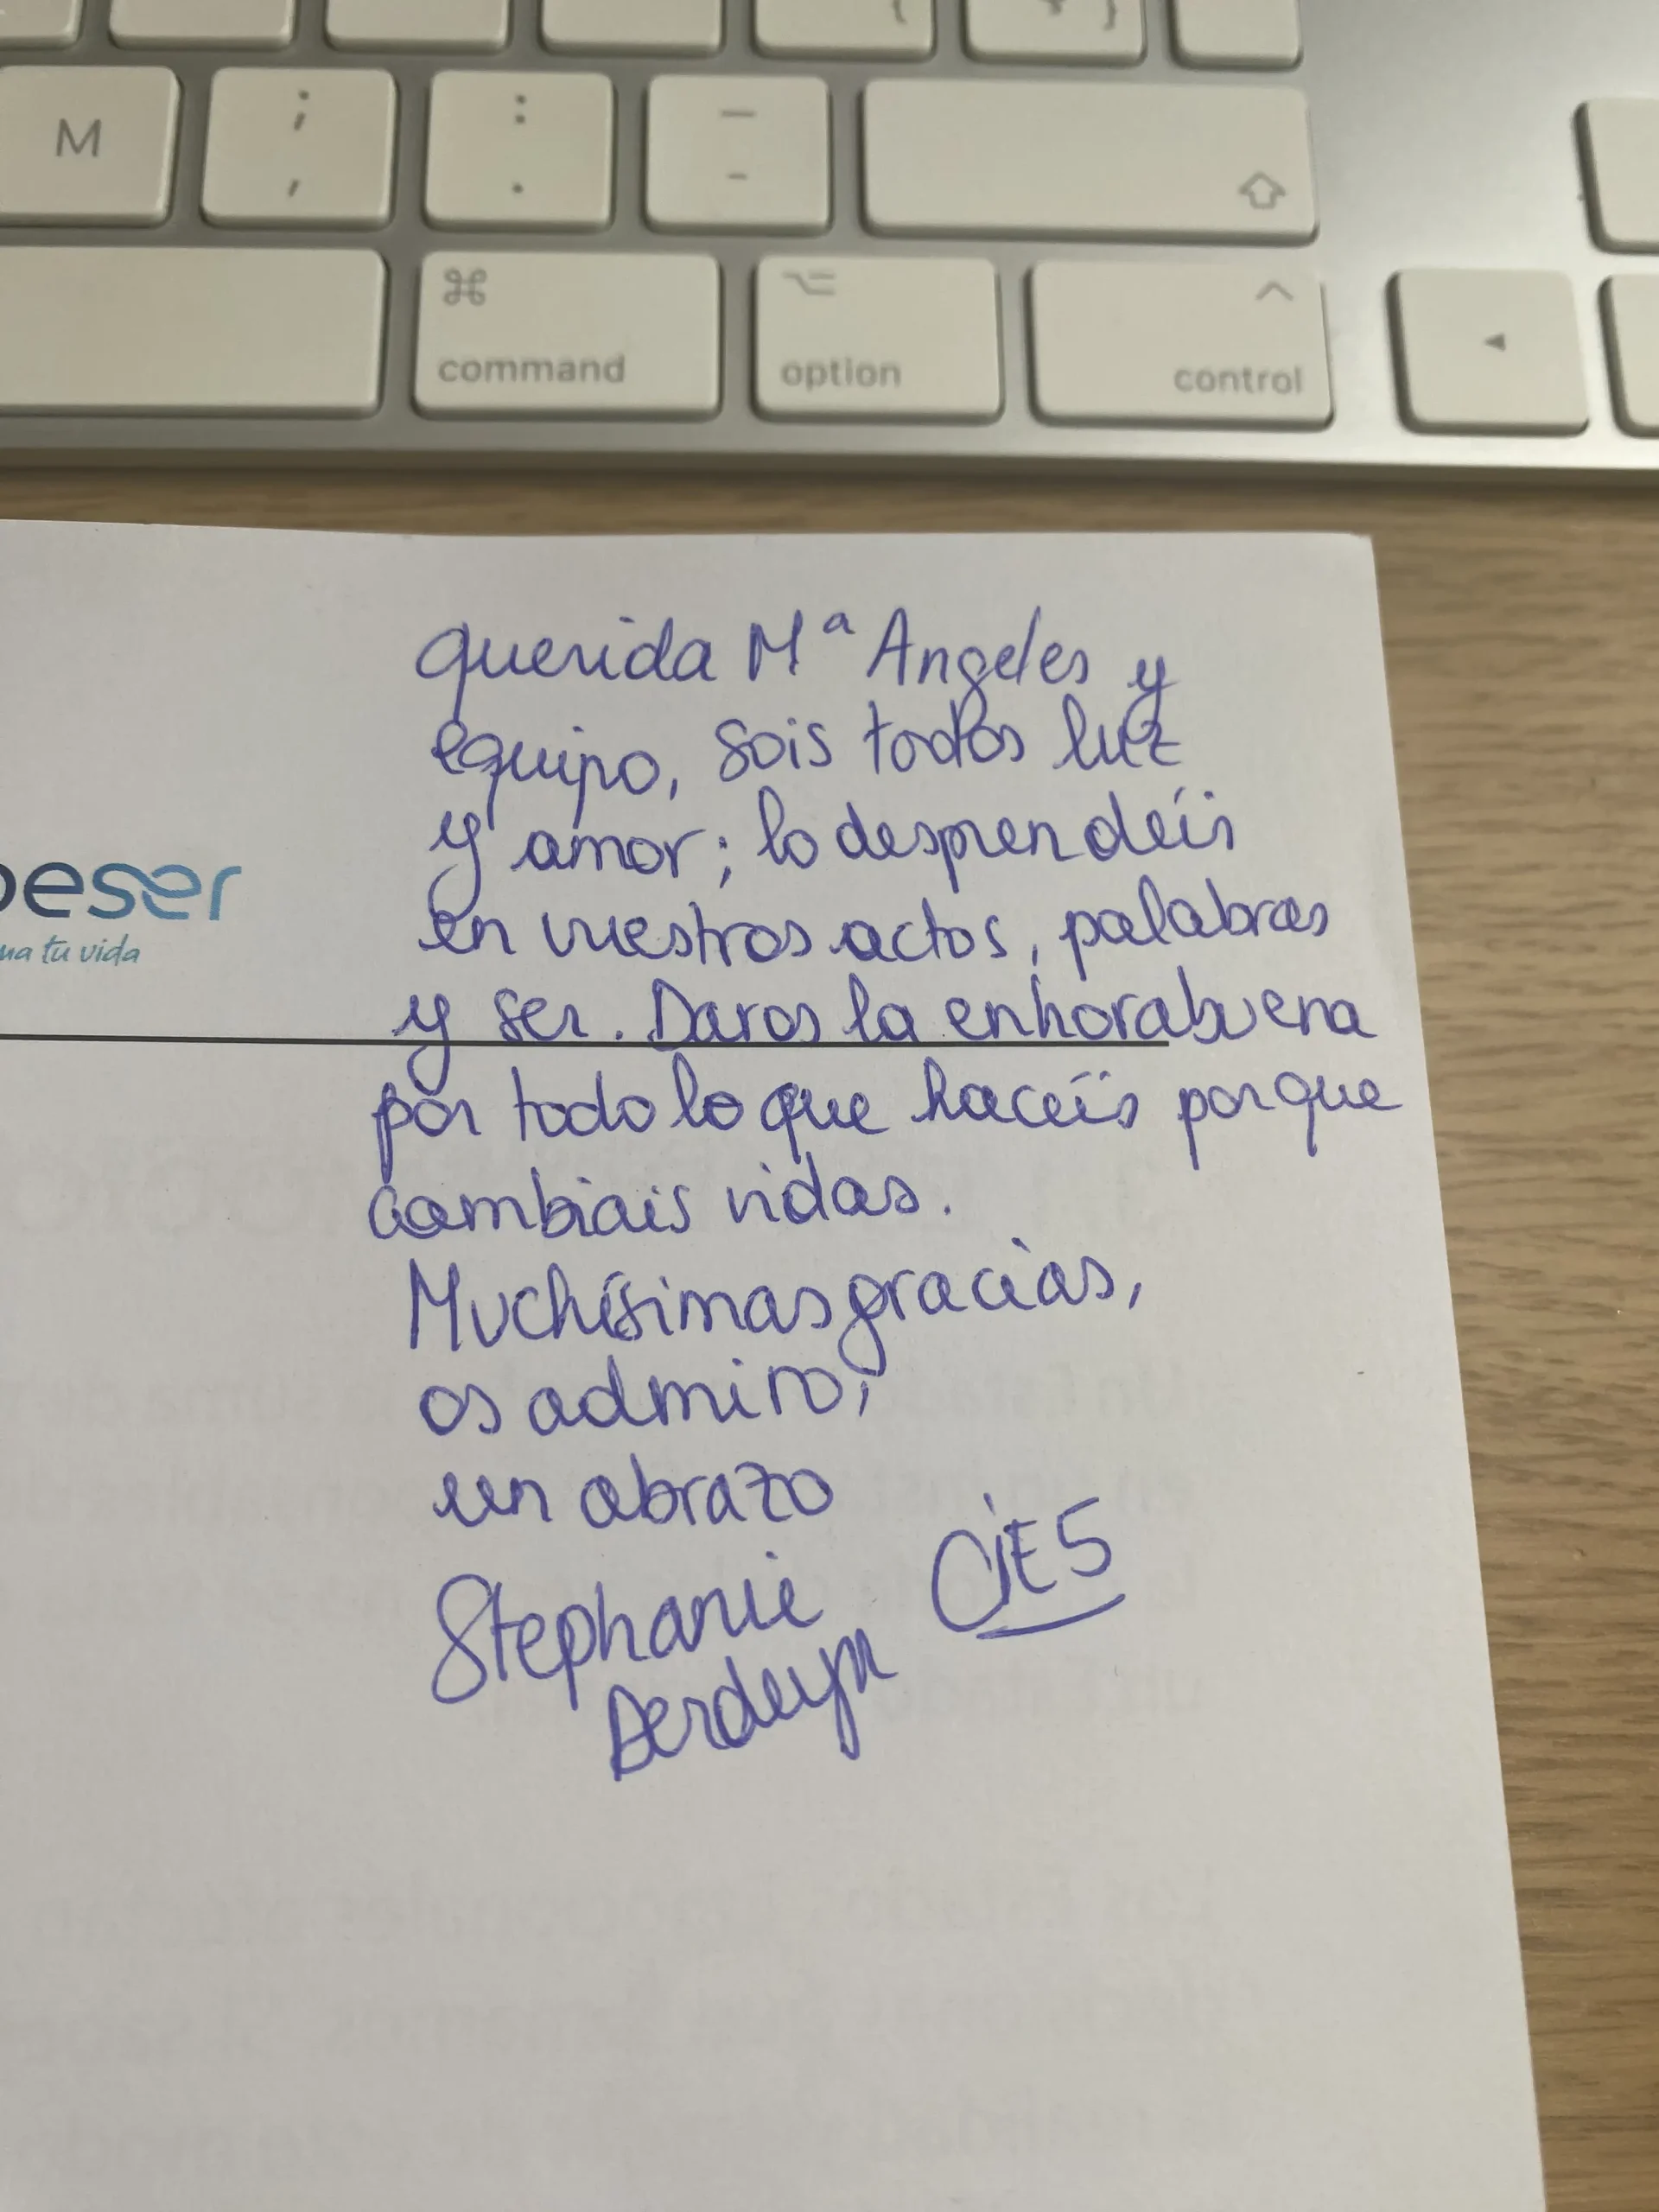 M
;
,
:
.
—
-
⌘
command
⌥
option
^
control
◄
querida Mª Angeles y
equipo, sois todos luz
y amor; lo desprendéis
en vuestros actos, palabras
y ser. Daros la enhorabuena
por todo lo que hacéis porque
cambiais vidas.
Muchísimas gracias,
os admiro,
un abrazo
Stephanie
Derdeyn
eser
tu vida